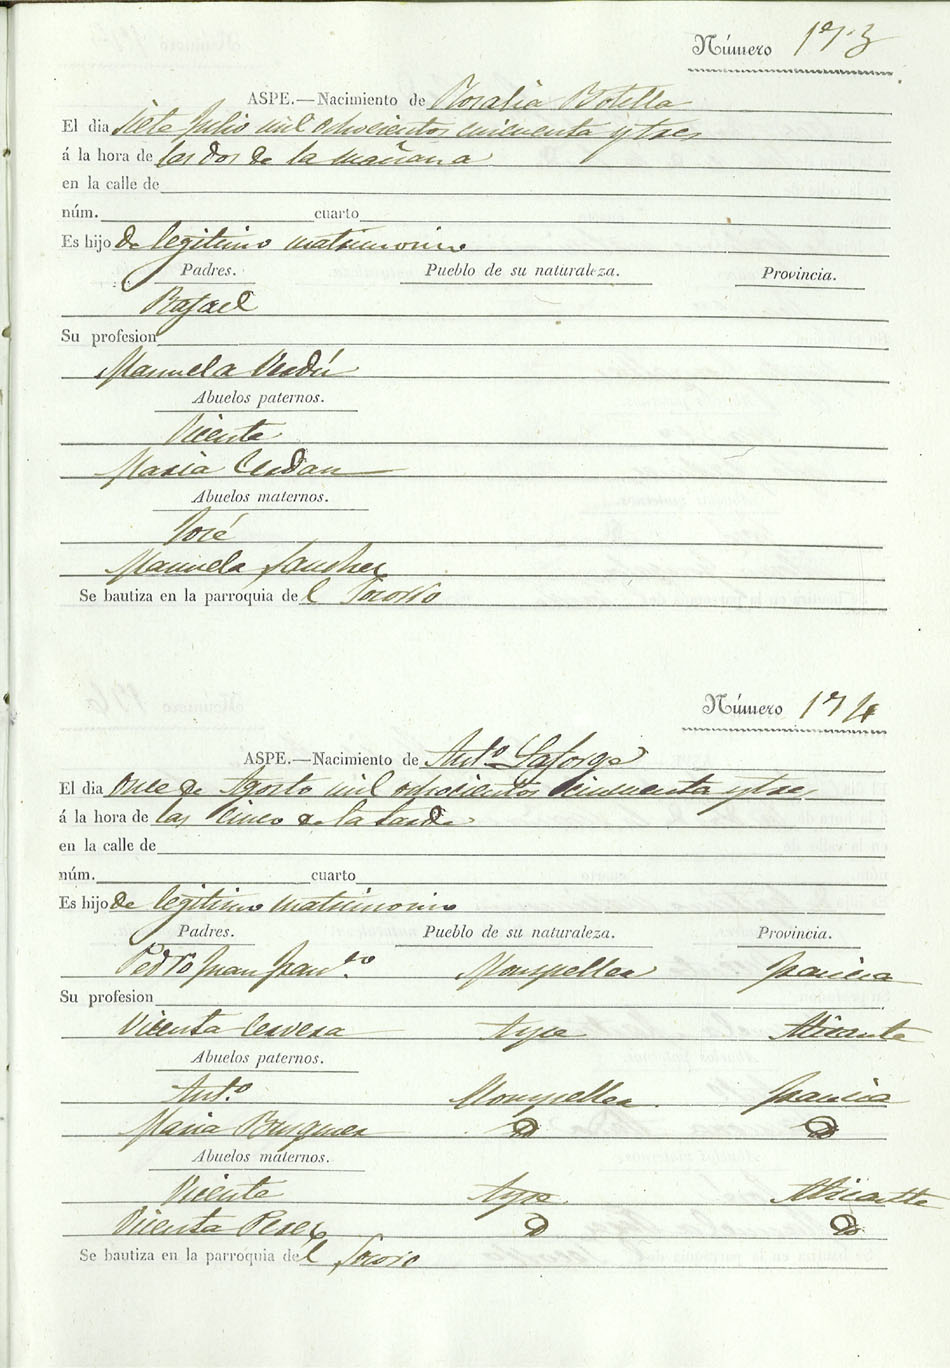 Número 173
ASPE.—Nacimiento de Rosalia Botella
El dia siete Julio mil ochocientos cincuenta y tres
á la hora de las dos de la mañana
en la calle de
núm. cuarto
Es hijo de legitimo matrimonio
Padres. Pueblo de su naturaleza. Provincia.
Rafael
Su profesion
Manuela Verdú
Abuelos paternos.
Vicente
Maria Cerdan
Abuelos maternos.
José
Manuela Sanchez
Se bautiza en la parroquia de l Socorro
Número 174
ASPE.—Nacimiento de Ant.o Laforga
El dia once de Agosto mil ochocientos cincuenta y tres
á la hora de las cinco de la tarde
en la calle de
núm. cuarto
Es hijo de legitimo matrimonio
Padres. Pueblo de su naturaleza. Provincia.
Pedro Juan Monpeller Francia
Su profesion
Vicenta Cervera Aspe Alicante
Abuelos paternos.
Ant.o Monpeller Francia
Maria D D
Abuelos maternos.
Vicente Aspe Alicante
Vicenta Perez D D
Se bautiza en la parroquia de l Socorro